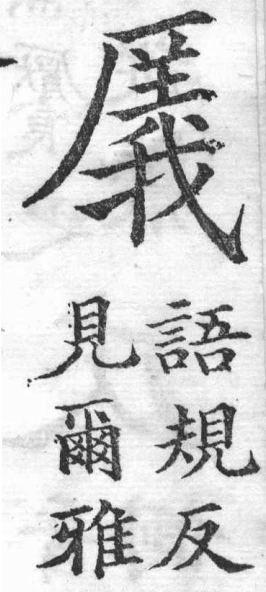 㕒
語規反
見爾雅